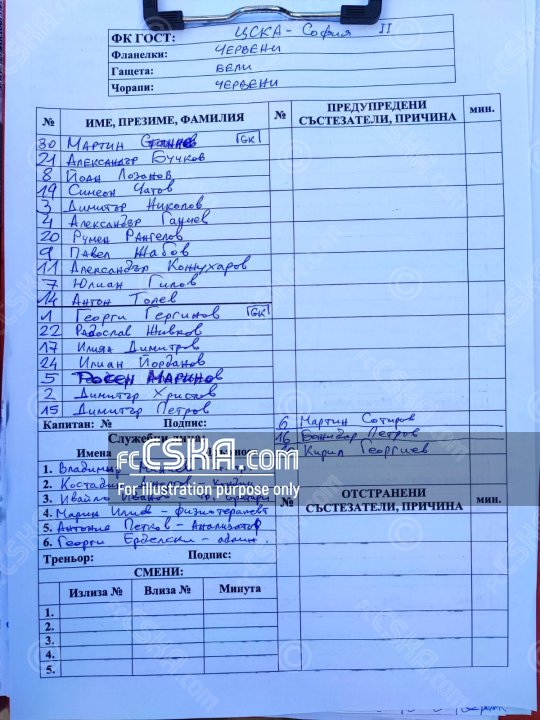 ФК ГОСТ: ЦСКА - София II
Фланелки: ЧЕРВЕНИ
Гащета: БЕЛИ
Чорапи: ЧЕРВЕНИ
№ ИМЕ, ПРЕЗИМЕ, ФАМИЛИЯ № ПРЕДУПРЕДЕНИ СЪСТЕЗАТЕЛИ, ПРИЧИНА мин.
30 МАРТИН GK
21 АЛЕКСАНДЪР БУЧКОВ
8 ЙОАН ЛОЗАНОВ
19 СИМЕОН ЧАТОВ
3 ДИМИТЪР НИКОЛОВ
4 АЛЕКСАНДЪР ГАНЧЕВ
20 РУМЕН РАНГЕЛОВ
9 ПАВЕЛ ЖАБОВ
11 АЛЕКСАНДЪР КОЖУХАРОВ
7 ЮЛИАН ГИЛОВ
14 АНТОН ТОНЕВ
1 ГЕОРГИ ГЕРГИНОВ GK
22 РАДОСЛАВ ЖИВКОВ
17 ИЛИЯН ДИМИТРОВ
24 ИЛИАН ЙОРДАНОВ
5 РОСЕН МАРИНОВ
2 ДИМИТЪР ХРИСТОВ
15 ДИМИТЪР ПЕТРОВ
Капитан: № Подпис:
6 МАРТИН СОТИРОВ
16 БОЖИДАР ПЕТРОВ
КИРИЛ ГЕОРГИЕВ
Служебни лица:
Имена
1. Владимир
2. Костадин Ангелов
3. Ивайло Иванов
4. Марин Илиев - физиотерапевт
5. Антонио Петков - Анализатор
6. Георги Ерделски - админ.
№ ОТСТРАНЕНИ СЪСТЕЗАТЕЛИ, ПРИЧИНА мин.
Треньор: Подпис:
СМЕНИ:
Излиза № Влиза № Минута
1.
2.
3.
4.
5.
fcCSKA.com
For Illustration purpose only